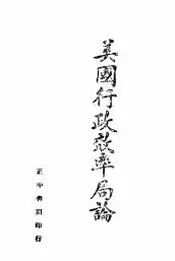 美國行政效率局論
正中書局印行